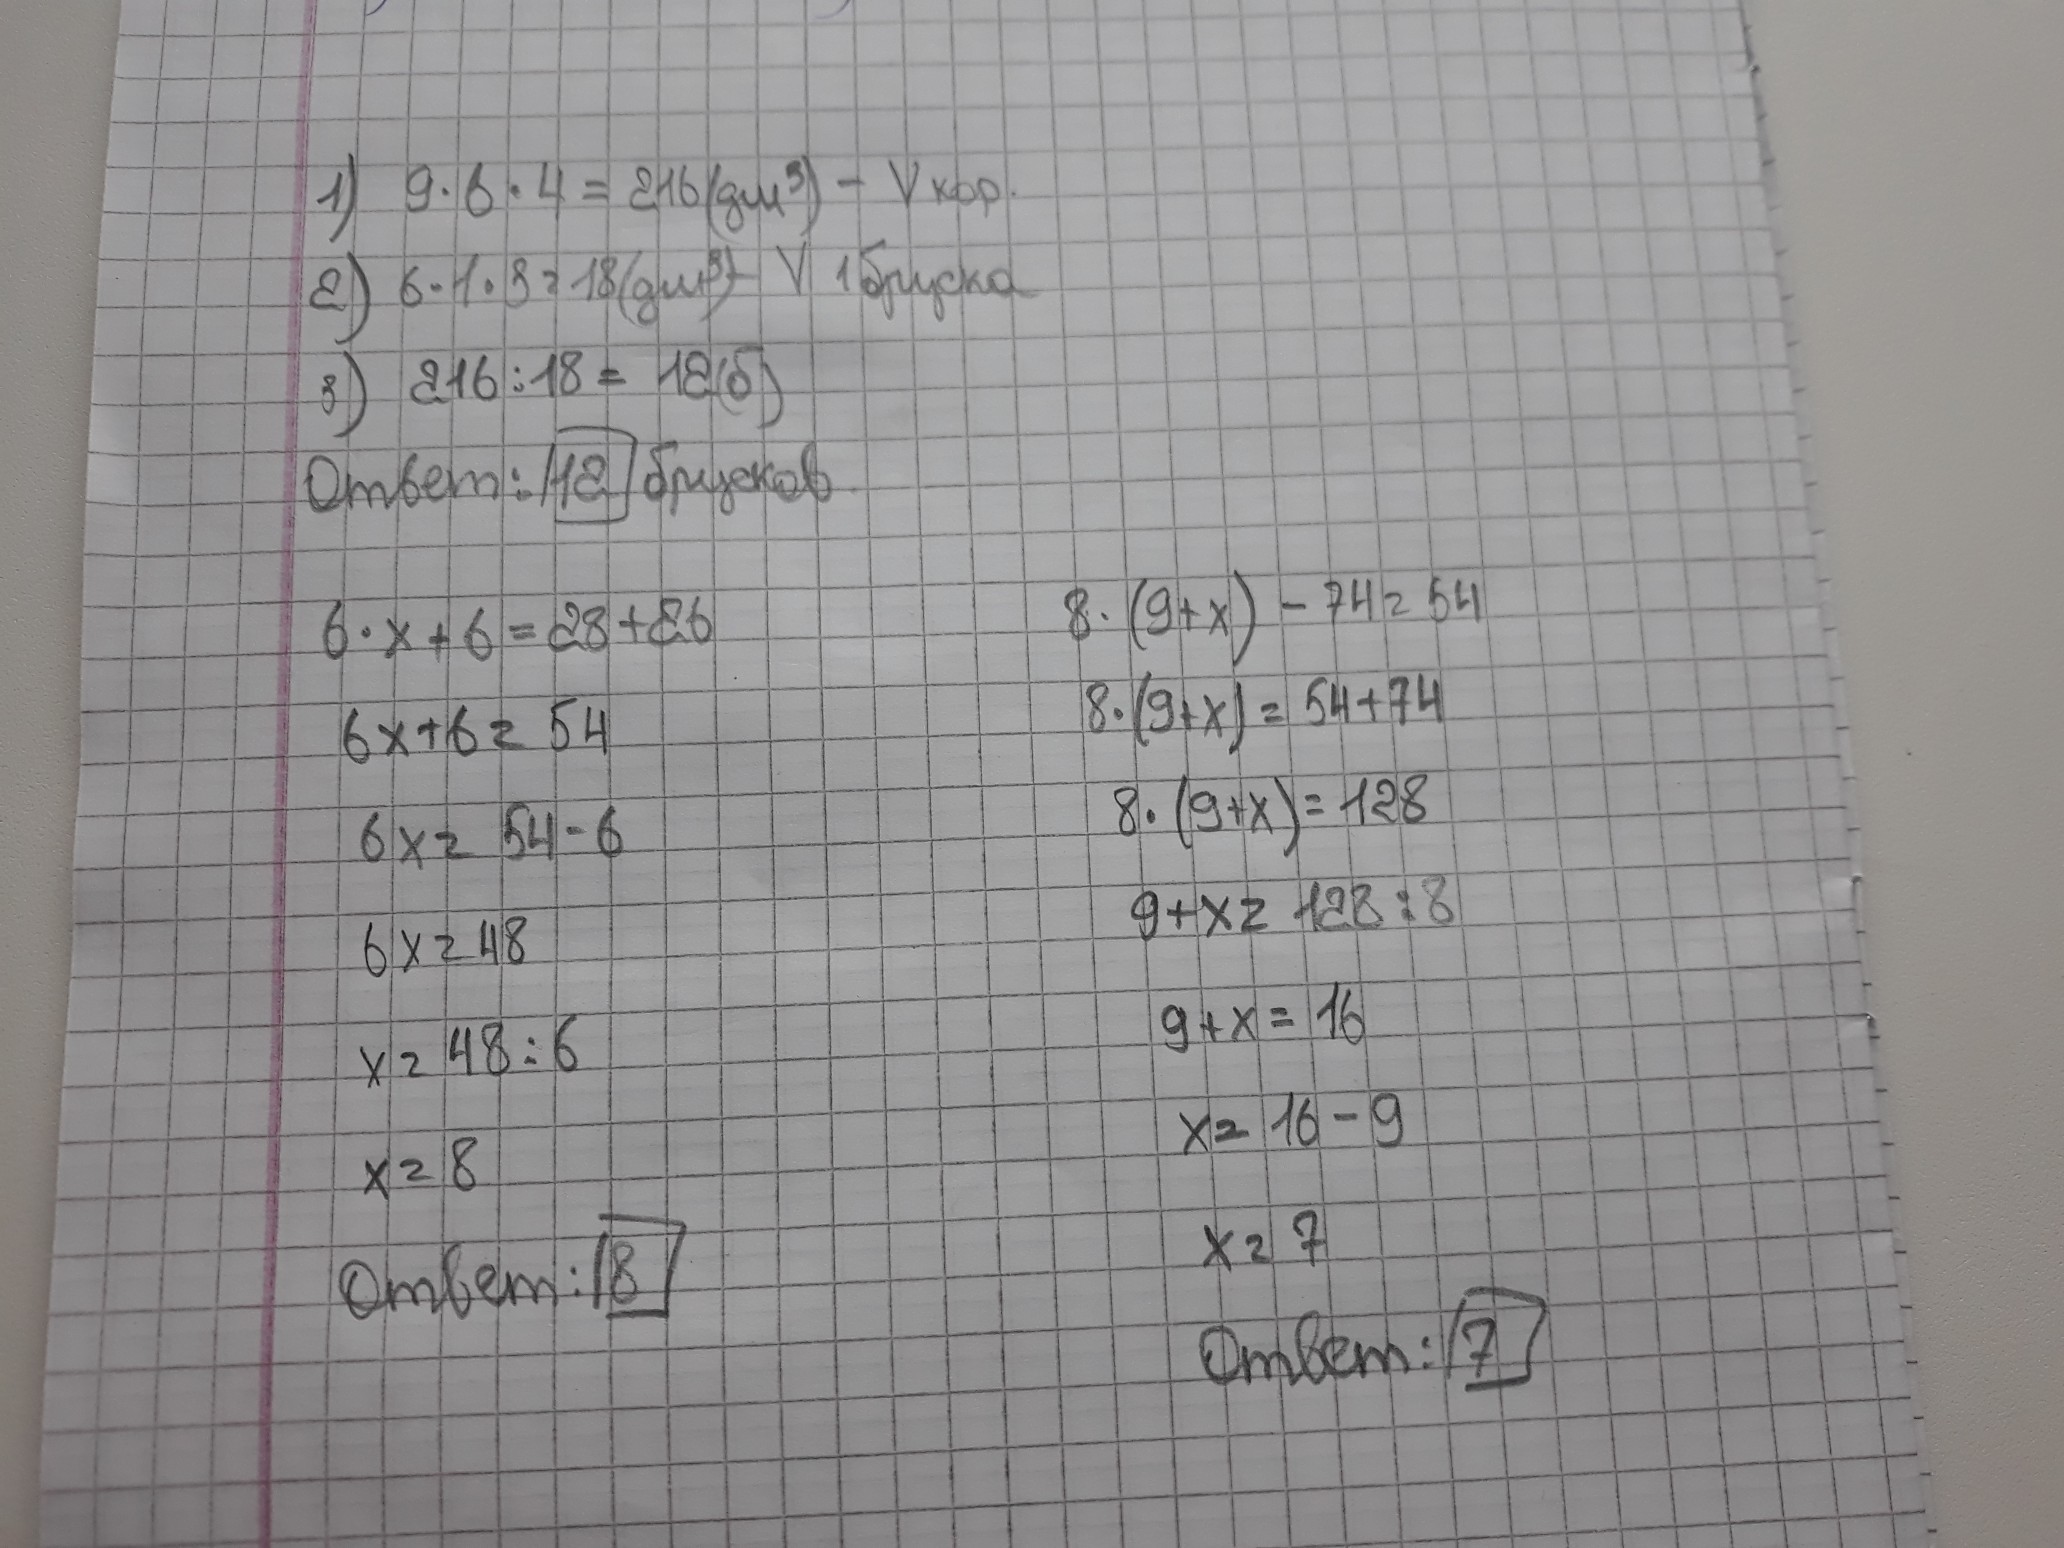 1) 9·6·4=216(дм³) – V кор.
2) 6·1·3=18(дм³) – V 1 бруска
3) 216:18=12(б)
Ответ: 12 брусков.
6·x+6=28+26
6x+6=54
6x=54-6
6x=48
x=48:6
x=8
Ответ: 8
8·(9+x)-74=54
8·(9+x)=54+74
8·(9+x)=128
9+x=128:8
9+x=16
x=16-9
x=7
Ответ: 7